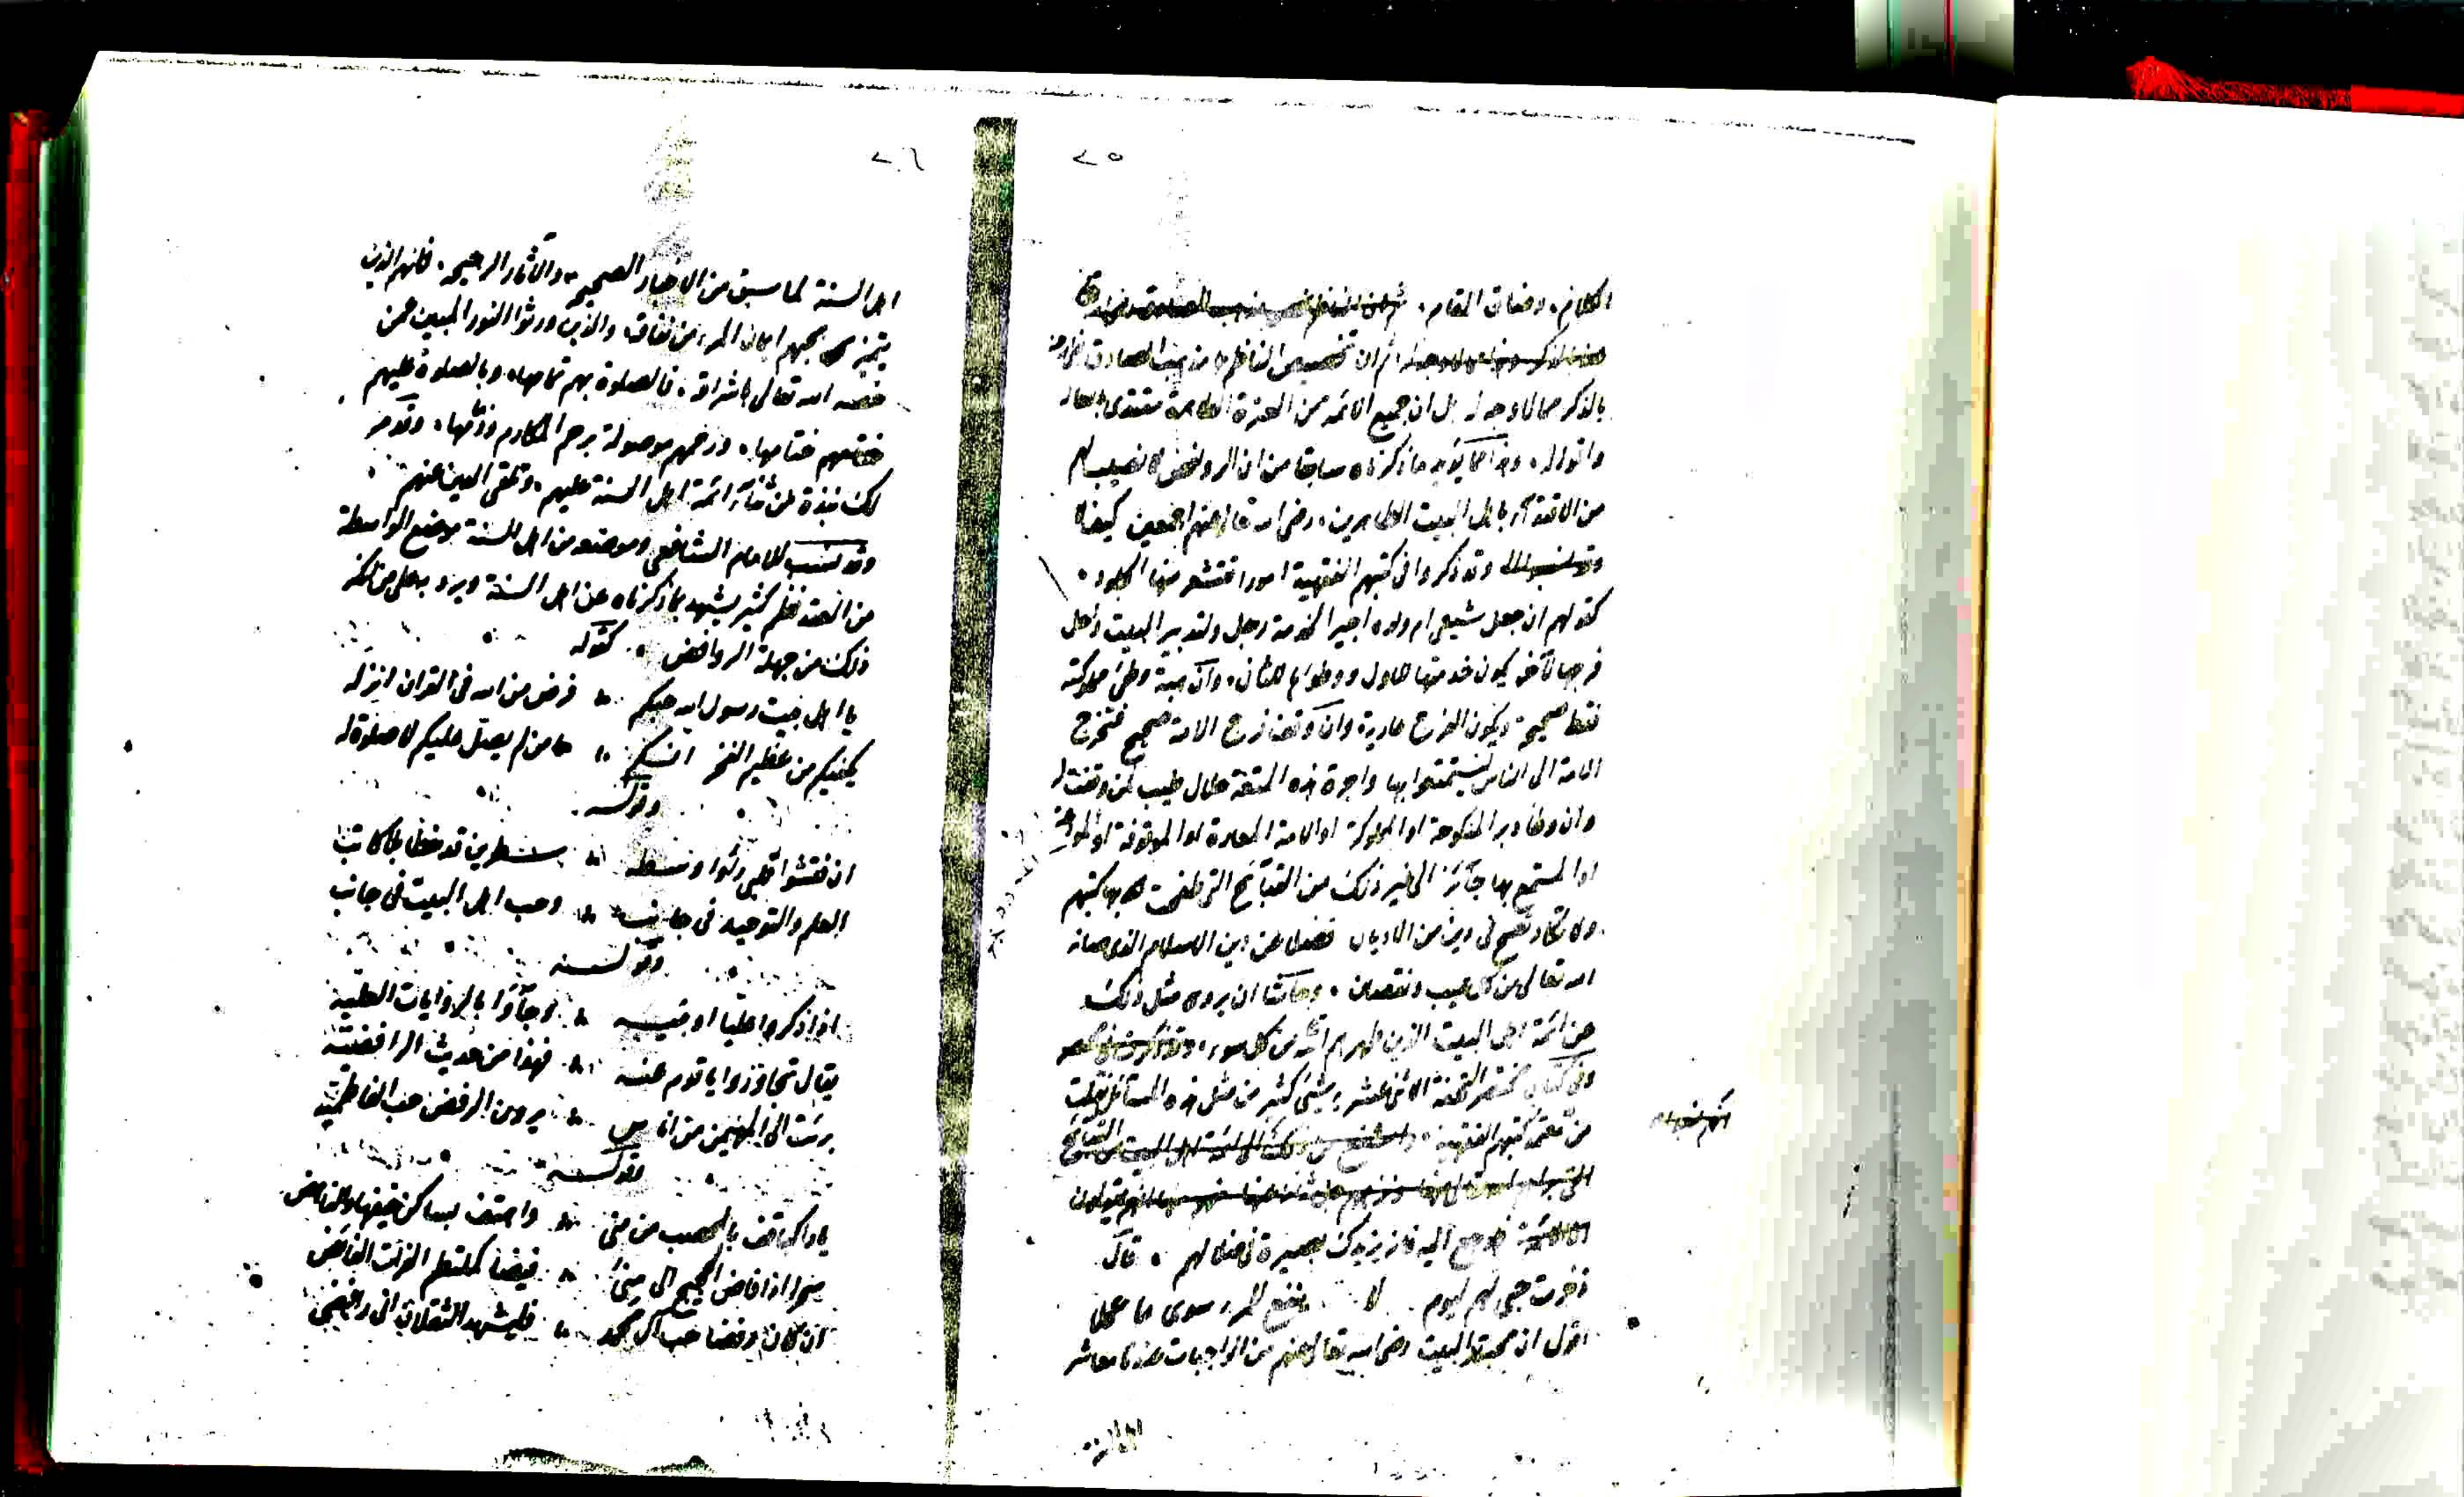 ٧٥
الكلام، وضاق المقام،
ثم ان تخصيص الناظم مذهب الصادق
بالذكر مما لا وجه له بل ان جميع الائمة من العترة الطاهرة مقتدى
واقواله، وهذا مما يؤيد ما ذكرناه سابقا من ان الروافض لا نصيب لهم
من الاقتداء باهل البيت الطاهرين، رضي الله تعالى عنهم اجمعين كيف لا
وقد ذكروا في كتبهم الفقهية امورا تقشعر منها الجلود،
كقولهم ان جعل شيعي ام ولده اجيرا لخدمة رجل ولتدبير البيت واحل
فرجها لآخر يكون خدمتها للاول ووطؤها للثاني، وان هبة وطئ مملوكته
فقط صحيحة ويكون الفرج عارية وان وقف فرج الامة صحيح فتخرج
الامة الى الناس ليستمتعوا بها واجرة هذه المتعة حلال طيب لمن وقفت له
وان وطأ دبر المنكوحة او المملوكة او الامة المعارة او الموقوفة او المودعة
او المستمتع بها جائز الى غير ذلك من القبائح التي طفحت بها كتبهم
ولا تكاد تصح في دين من الاديان فضلا عن دين الاسلام الذي صانه
الله تعالى من كل عيب ونقصان، وحاشا ان يروى مثل ذلك
عن ائمة اهل البيت الذين طهرهم الله من كل سوء،
وفي كتاب مختصر التحفة الاثني عشرية شيء كثير من مثل هذه المسائل نقلت
من معتبر كتبهم الفقهية
فارجع اليه فانه يزيدك بصيرة في ضلالهم، قال
ذخرت حبي لهم ليوم لا ينفع المرء سوى ما عمل
اقول ان محبة اهل البيت رضي الله تعالى عنهم من الواجبات عندنا معاشر
٧٦
اهل السنة لما سبق من الاخبار الصحيحة، والآثار الرجيحة، فانهم الذين
يتميز بحبهم ايمان المرء من نفاقه والذين ورثوا النور المبين عمن
خصه الله تعالى باشراقه، فالصلوة بهم تمامها، وبالصلوة عليهم
ختامها، ورحمهم موصولة برحم المكارم وذممها، وقد مر
لك نبذة من ثناء ائمة اهل السنة عليهم، وتلقي الدين عنهم،
وقد نسب للامام الشافعي وموضعه من اهل السنة موضع الواسطة
من العقد نظم كثير يشهد بما ذكرناه عن اهل السنة ويرد به على من انكر
ذلك من جهلة الروافض، كقوله
يا اهل بيت رسول الله حبكم فرض من الله في القران انزله
يكفيكم من عظيم الفخر انكم من لم يصل عليكم لا صلوة له
وقوله
ان فتشوا قلبي رأوا وسطه سطرين قد خطا بلا كاتب
العلم والتوحيد في جانب وحب اهل البيت في جانب
وقوله
اذا ذكروا عليا او بنيه وجاؤا بالروايات العلية
يقال تجاوزوا يا قوم عنه فهذا من حديث الرافضية
برئت الى المهيمن من اناس يرون الرفض حب الفاطمية
وقوله
يا راكبا قف بالمحصب من منى واهتف بساكن خيفها والناهض
سحرا اذا فاض الحجيج الى منى فيضا كملتطم الفرات الفائض
ان كان رفضا حب آل محمد فليشهد الثقلان اني رافضي